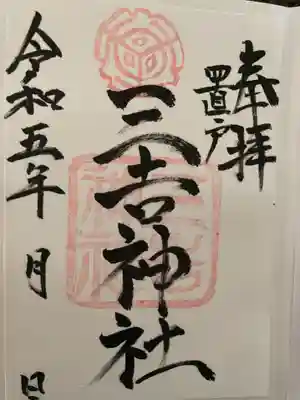 奉拝
置戸
三吉神社
令和五年 月 日